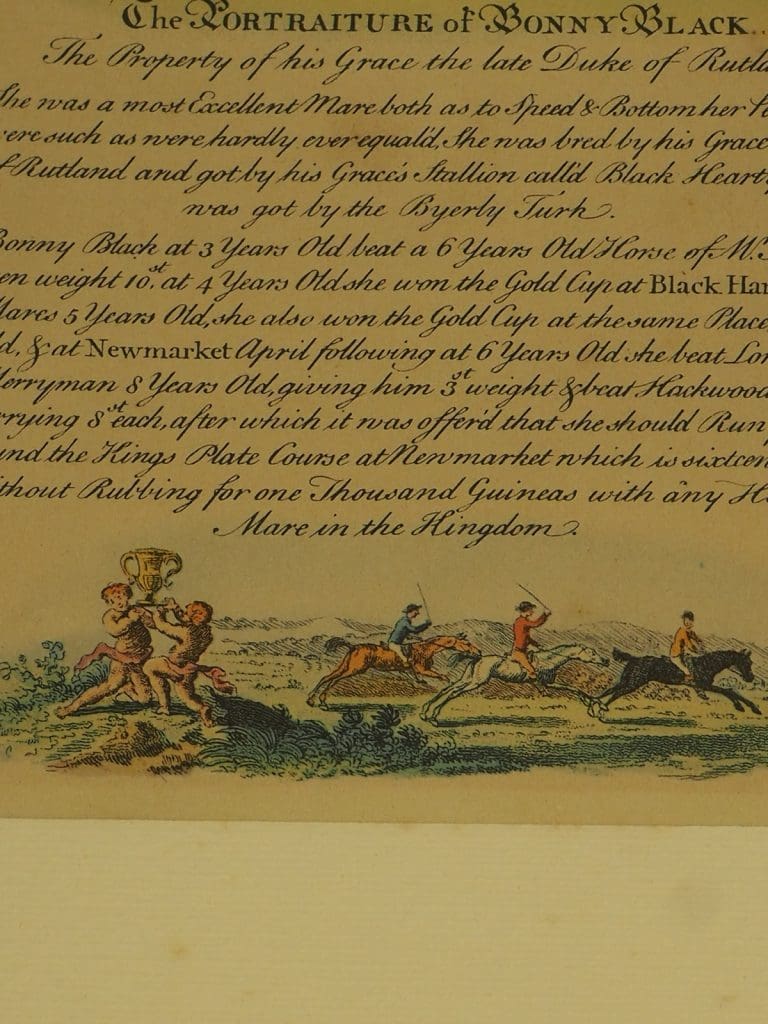 The PORTRAITURE of BONNY BLACK..
The Property of his Grace the late Duke of
She was a most Excellent Mare both as to Speed & Bottom her
were such as were hardly ever equal'd, She was bred by his Grace
of Rutland and got by his Grace's Stallion call'd Black Hearty
was got by the Byerly Turk.
Bonny Black at 3 Years Old beat a 6 Years Old Horse of Mr.
weight 10st. at 4 Years Old she won the Gold Cup at Black
Mares 5 Years Old, she also won the Gold Cup at the same Place,
& at Newmarket April following at 6 Years Old she beat
Merryman 8 Years Old, giving him 3st weight & beat Hackwood
8st each, after which it was offer'd that she should Run
the Kings Plate Course at Newmarket which is sixteen
without Rubbing for one Thousand Guineas with any
Mare in the Kingdom.